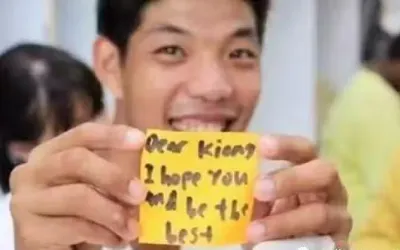 Dear Kiang
I hope You
and be the
best